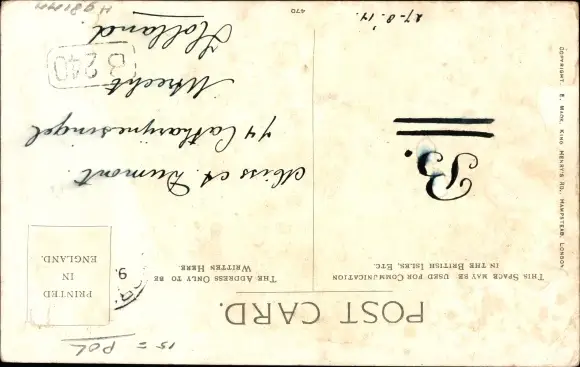 15 = POL
POST CARD.
THIS SPACE MAY BE USED FOR COMMUNICATION
IN THE BRITISH ISLES, ETC.
THE ADDRESS ONLY TO BE
WRITTEN HERE.
PRINTED
IN
ENGLAND.
9.
B.
Miss A. Dumont.
74 Catharijnesingel
Utrecht
Holland.
B 240
27-8-14.
470
COPYRIGHT. E. MACK, KING HENRY'S RD., HAMPSTEAD, LONDON.